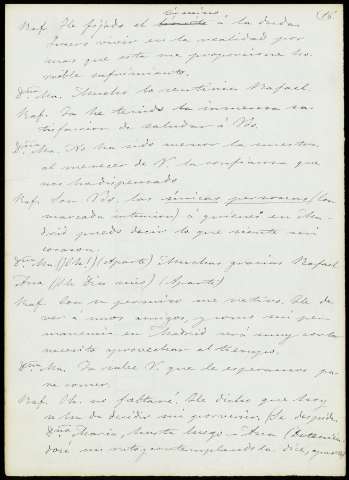 término 15.
Raf. He fijado el término á la duda.
Quiero vivir en la realidad por
mas que esta me proporcione ho-
rrible sufrimiento.
Dña. Ma. Mucho lo sentimos Rafael.
Raf. Ya he tenido la inmensa sa-
tisfaccion de saludar á Vds.
Dña. Ma. No ha sido menor la nuestra
al merecer de V. la confianza que
nos ha dispensado.
Raf. Son Vds. las únicas personas (Con
marcada intencion) á quienes en Ma-
drid puedo decir lo que siente mi
corazon.
Dña. Ma (¡Ah!) (Aparte) Muchas gracias Rafael
Ana (¡Ah Dios mio) (Aparte)
Raf. Con su permiso me retiro. He de
ver á unos amigos, y como mi per-
manencia en Madrid será muy corta
necesito aprovechar el tiempo.
Dña. Ma. Ya sabe V. que le esperamos pa-
ra comer.
Raf. Oh, no faltaré. He dicho que hoy
se ha de decidir mi porvenir. (Se despide.
Dña. María, hasta luego - Ana (Detenien-
dose un rato y contemplandola dice,